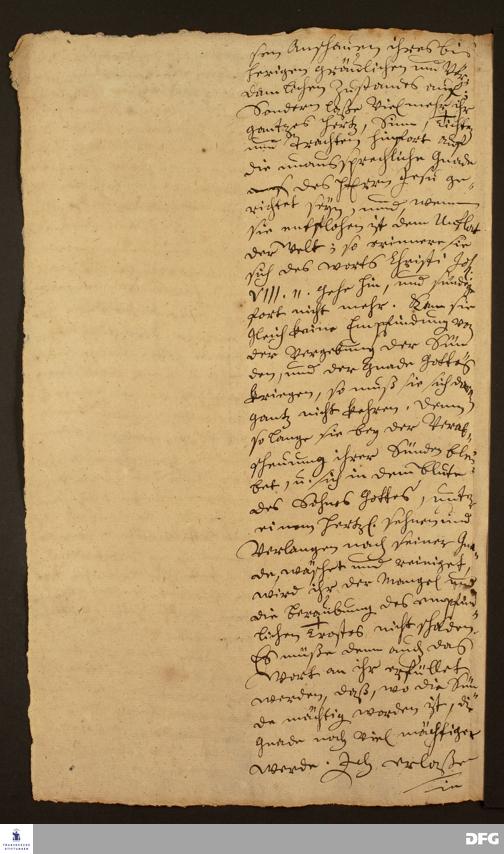 sen Anschauen ihres bis-
herigen gräulichen und Ver-
damlichen Zustandes auf;
Sondern laße Vielmehr ihr
gantzes Hertz, Sinn, Tichten
und Trachten hinfort auf
die unaussprechliche Gnade
des Herrn Jesu ge-
richtet seyn, und, wenn
sie entflohen ist dem Unflat
der Welt; so erinnere sie
sich des Worts Christi Joh.
VIII. 11. gehe hin, und sündige
fort nicht mehr. Kan sie
gleich keine Empfindung von
der Vergebung der Sün-
den, und der Gnade Gottes
kriegen, so muß sie sich daran
gantz nicht kehren. Denn
so lange sie bey der Verab-
scheuung ihrer Sünden blei-
bet, u. sich in dem Blute
des Sohnes Gottes, unter
einem hertzl. sehnen und
Verlangen nach seiner Gna-
de, wäschet und reiniget,
wird ihr der Mangel und
die Beraubung des empfind-
lichen Trostes nicht schaden.
Es müße denn auch das
Wort an ihr erfüllet
werden, daß, wo die Sün-
de mächtig worden ist, die
Gnade noch viel mächtiger
werde. Ich erlaße
sie
FRANCKESCHE
STIFTUNGEN
DFG